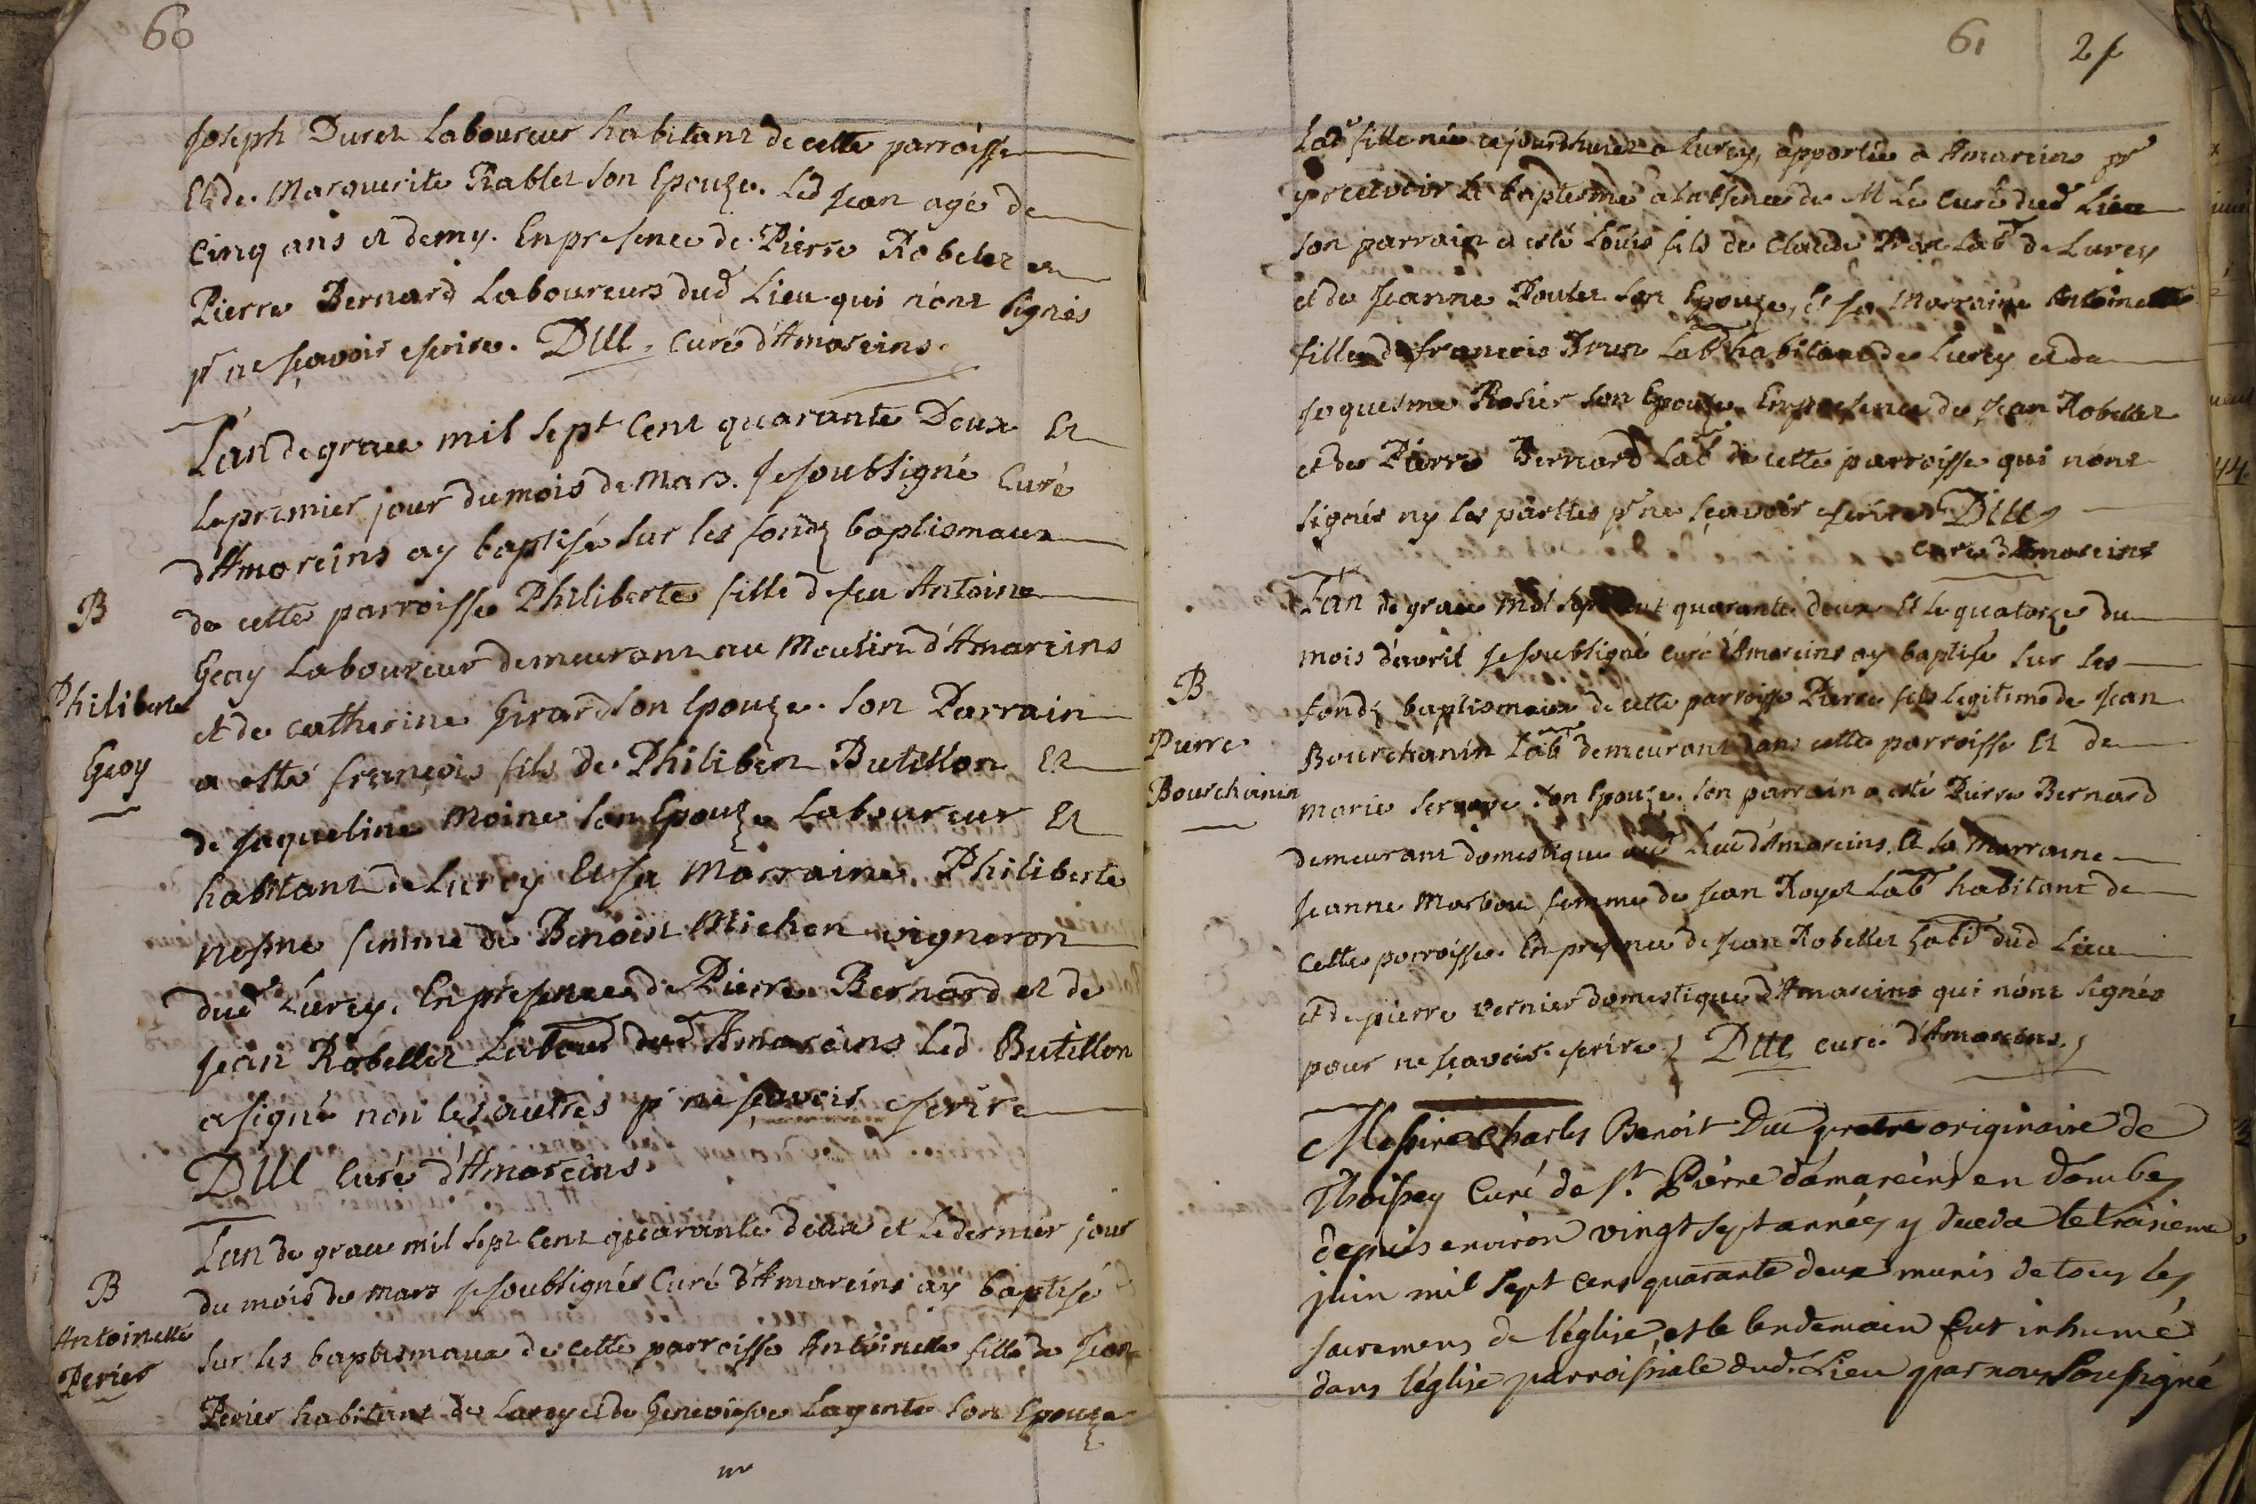 60
Joseph Duret Laboureur habitant de cette parroisse
Et de Marguerite Rablet son Epouze. Led Jean agé de
cinq ans et demy. En presence de Pierre Robelet et
Pierre Bernard Laboureurs dud Lieu qui n'ont signés
pr ne sçavoir escrire. Duc, curé d'Amareins.
L'an de grace mil sept cent quarante Deux Et
le premier jour du mois de Mars. Je soubsigné Curé
d'Amareins ay baptisé sur les fondz baptismaux
B
de cette parroisse Philiberte fille de feu Antoine
Geay Laboureur demeurant au Moulin d'Amareins
Philiberte
Geay
et de catherine Girard son Epouze. Son Parrain
a esté françois fils de Philibert Butillon Et
de Jaqueline Moine son Epouze Laboureur Et
habitant de Lurcy Et sa Marraine Philiberte
nesme femme de Benoist Michon vigneron
dud Lurcy. En presence de Pierre Bernard et de
Jean Robellet Labour dud Amareins Led Butillon
a signé non les autres pr ne sçavoir escrire
Duc Curé d'Amareins
L'an de grace mil sept Cent quarante deux et Le dernier jour
B
du mois de Mars Je soubsignés Curé d'Amareins ay baptisé
Antoinette
Perier
sur les baptismaux de cette parroisse Antoinette fille de Jean
Perier habitant de Lurcy et de Genevieve Lagente son Epouze
61
2
Lade fille née cejourdhuict a Lurcy, apportée a Amareins pr
y recevoir le baptesme a l'absence de M Le Curé dud Lieu
son parrain a esté Louis fils de Claude Labr de Lurcy
et de Jeanne Poulet son Epouze, Et sa Marraine Antoinette
fille de francois Labr habitant de Lurcy et de
Jaquesme Rosier son Epouze. En presence de Jean Robellet
et de Pierre Bernard Labr de cette parroisse qui n'ont
signés ny les parties pr ne sçavoir escrire Duc
curé d'Amareins
L'an de grace mil sept cent quarante deux Et le quatorze du
mois d'avril Je soubsigné curé d'Amareins ay baptisé sur les
B
Pierre
Bourchanin
fondz baptismaux de cette parroisse Pierre fils legitime de Jean
Bourchanin Labr demeurant dans cette parroisse Et de
marie son Epouze. son parrain a esté Pierre Bernard
demeurant domestique aud Lieu d'Amareins. Et sa Marraine
Jeanne Marbou femme de Jean Royet Labr habitant de
cette parroisse. En presence de Jean Robellet Labr dud Lieu
et de pierre vernier domestique d'Amareins qui n'ont signés
pour ne sçavoir escrire Duc curé d'Amareins
Messire Charles Benoit Duc pretre originaire de
Thoissey Curé de St Pierre d'amareins en dombes
depuis environ vingt sept années y deceda le troisieme
juin mil sept cens quarante deux munis de tous les
sacremens de l'église, et le lendemain fut inhumé
dans l'église parroissiale dud. Lieu par nous soussigné